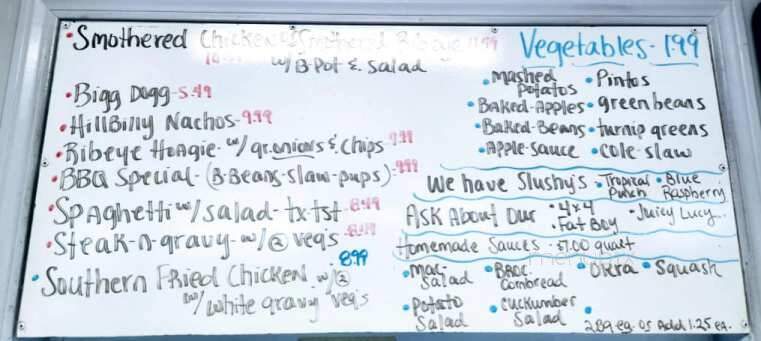 • Smothered Chicken & Smothered Ribeye 11.99
w/ B. Pot & Salad
• Bigg Dogg - 5.49
• Hillbilly Nachos - 9.99
• Ribeye Hoagie - w/ gr. onions & chips 9.99
• BBQ Special - (B-Beans-slaw-pups) - 9.99
• Spaghetti w/ salad - tx-tst - 8.49
• Steak-n-gravy - w/ ② veg's
8.99
• Southern Fried Chicken w/ ②
w/ white gravy veg's
Vegetables - 1.99
• Mashed Potatos • Pintos
• Baked-Apples • green beans
• Baked-Beans • turnip greens
• Apple-sauce • cole slaw
We have Slushy's • Tropical Punch • Blue Raspberry
Ask About Our • 4x4 • Juicy Lucy...
• Fat Boy
Homemade Sauces - $7.00 quart
• Mac Salad • Broc. Cornbread • Okra • Squash
• Potato Salad • Cuckumber Salad •
2.89 eg. or Add 1.25 ea.